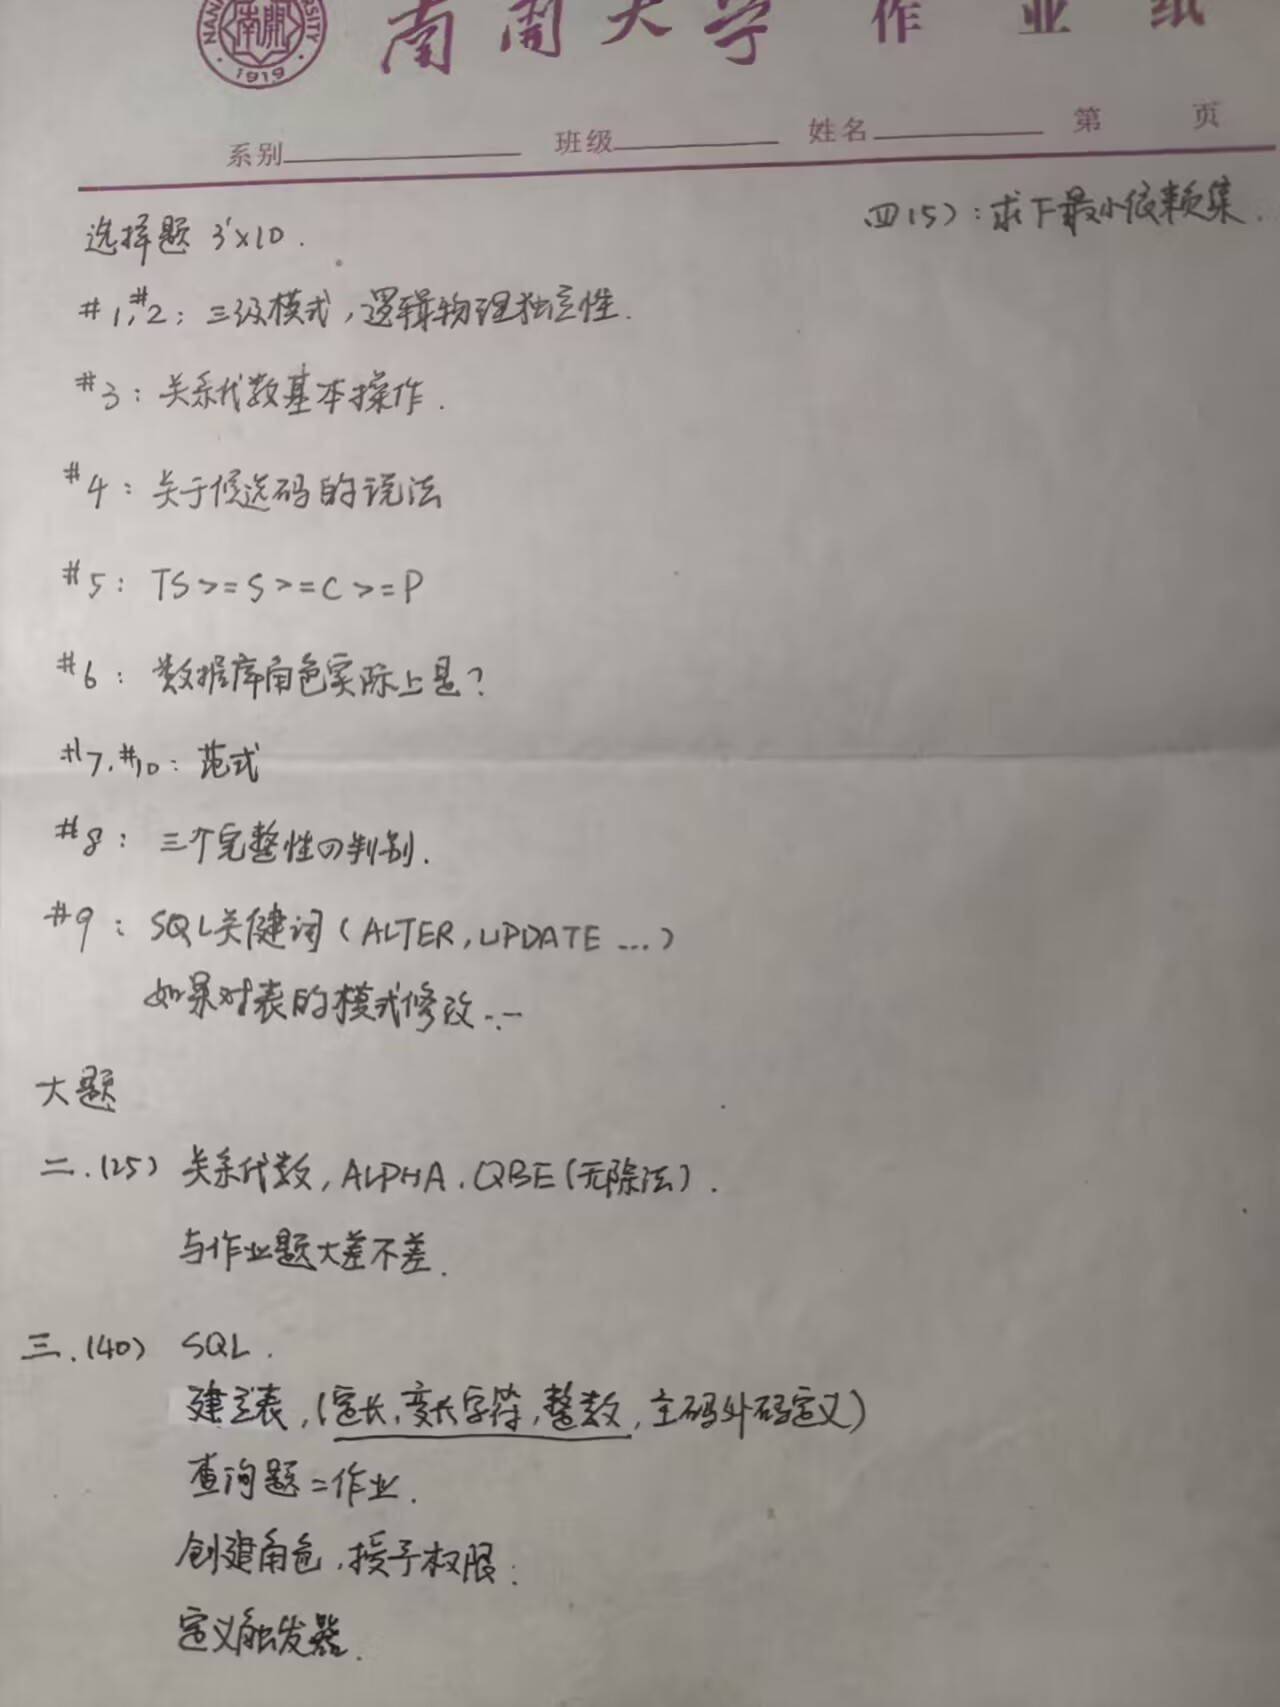 南開大学 作业纸
1919
系别 班级 姓名 第 页
四(5):求下最小依赖集.
选择题 3'×10.
#1,#2:三级模式,逻辑物理独立性.
#3:关系代数基本操作.
#4:关于候选码的说法
#5:TS>=S>=C>=P
#6:数据库角色实际上是?
#7,#10:范式
#8:三个完整性の判别.
#9:SQL关键词(ALTER,UPDATE ...)
如果对表的模式修改...
大题
二.(25) 关系代数,ALPHA.QBE(无除法).
与作业题大差不差.
三.(40) SQL.
建立表,(定长,变长字符,整数,主码外码定义)
查询题=作业.
创建角色,授予权限.
定义触发器.